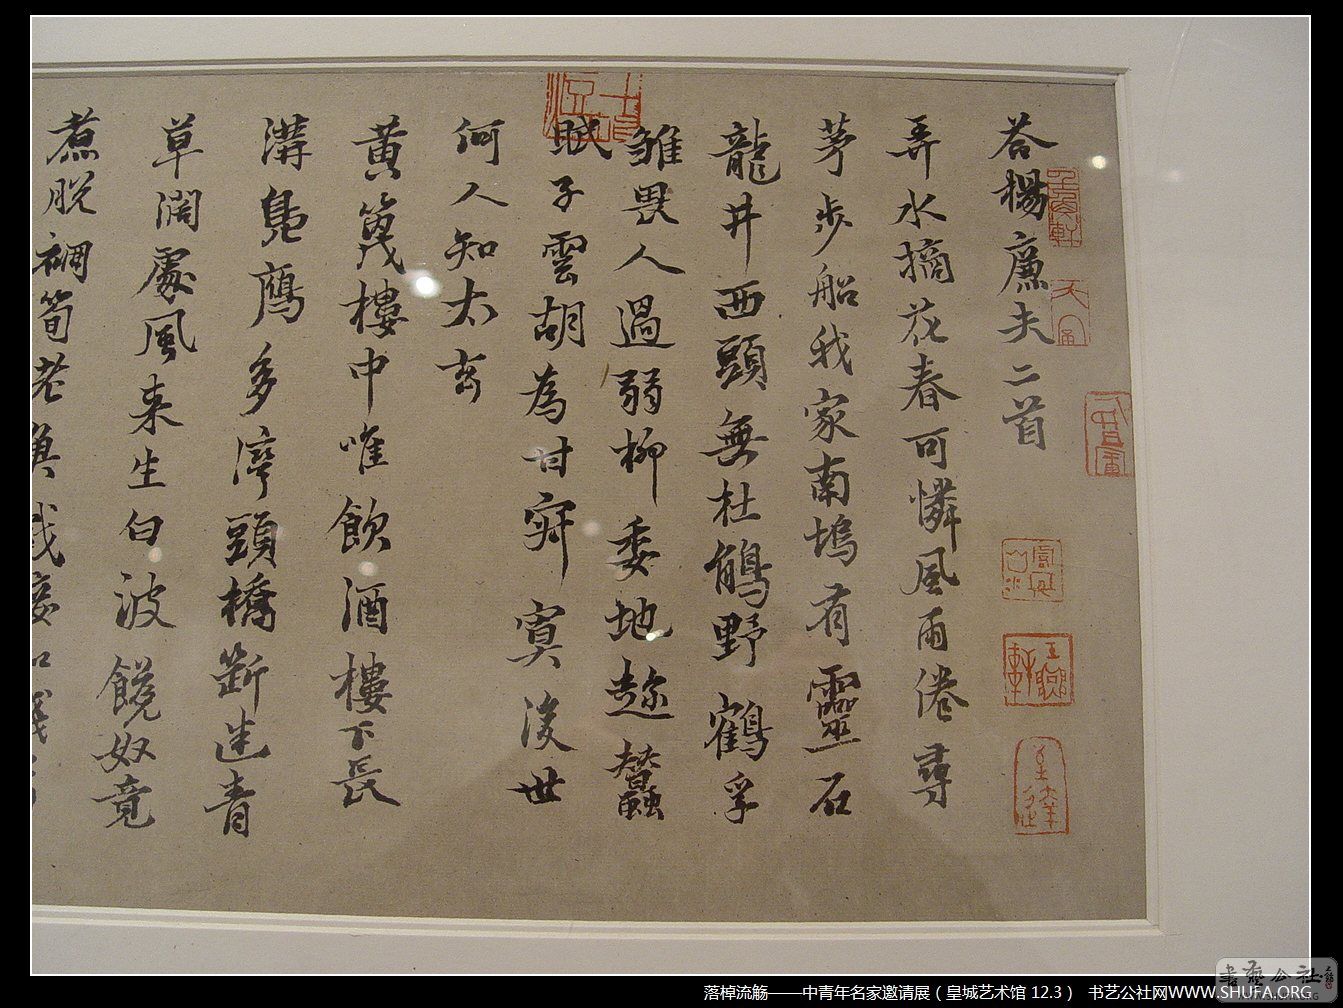 荅楊廉夫二首
弄水摘花春可憐風雨倦尋
茅步船我家南塢有靈石
龍井西頭無杜鵑野鶴孚
雛畏人過弱柳委地趂蠶
眠子雲胡為甘寂寞後世
何人知太玄
黄篾樓中唯飲酒樓下長
溝鳧鴈多灣頭橋斷迷青
草濶處風来生白波饒奴竟
煮脫襴筍老
落棹流觞——中青年名家邀请展（皇城艺术馆 12.3） 书艺公社网WWW.SHUFA.ORG
書藝公社